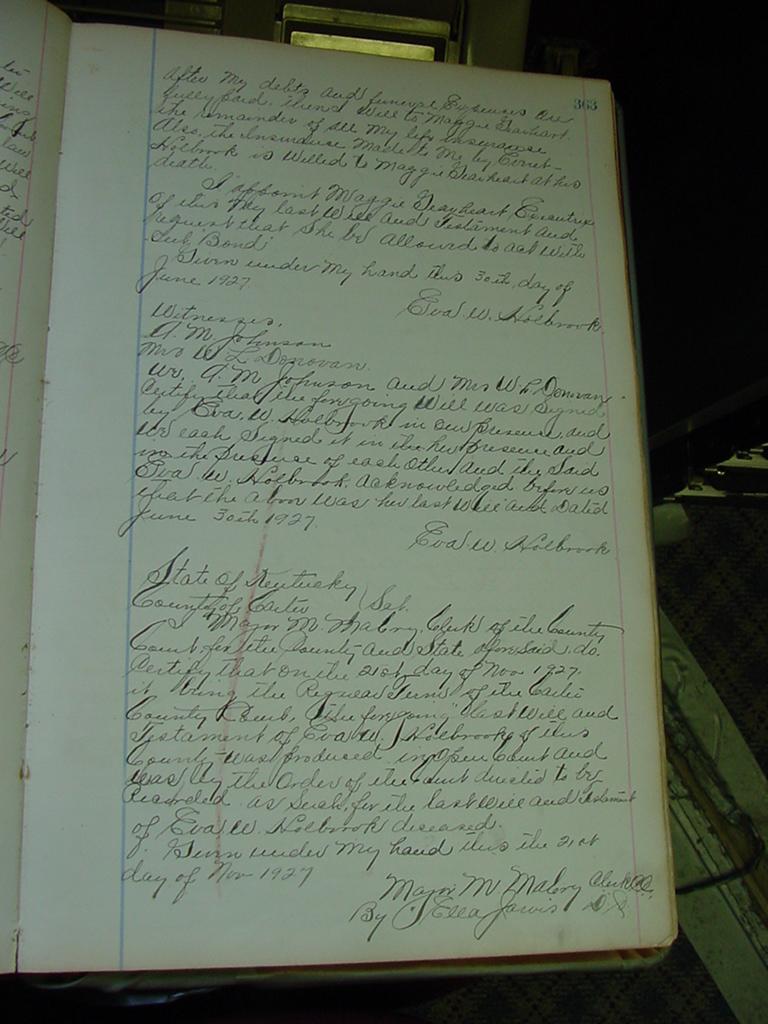 363
After my debts and funeral Expenses are
fully paid. then I will to Maggie Gearheart
the remainder of all my life insurance
Also, the Insurance made to me by Ernest
Holbrook is willed to Maggie Gearheart at his
death.
I appoint Maggie Gearheart Executrix
of this my last Will and Testament and
request that She be allowed to act with
out Bond.
Given under my hand this 30th day of
June 1927
Eva W. Holbrook.
Witnesses.
A. M. Johnson
Mrs W L Donovan.
We, A. M. Johnson and Mrs W. L. Donovan.
Certify that the foregoing Will was Signed
by Eva. W. Holbrook in our presence, and
We each Signed it in the her presence and
in the presence of each other and the said
Eva W. Holbrook acknowledged before us
that the above was her last Will and Dated
June 30th 1927.
Eva W. Holbrook
State of Kentucky
County of Carter Sct.
Major M. Mabry, Clerk of the County
Court for the County and State aforesaid, do.
Certify that on the 21st day of Nov 1927.
it being the Regular Term of the Carter
County Court, the foregoing last Will and
Testament of Eva W. Holbrook of this
County was produced in open Court and
was by the Order of the Court directed to be
Recorded as such, for the last Will and Testament
of Eva W. Holbrook deceased.
Given under my hand this the 21st
day of Nov 1927
Major M Mabry Clerk
By Ella Jarvis D. C.